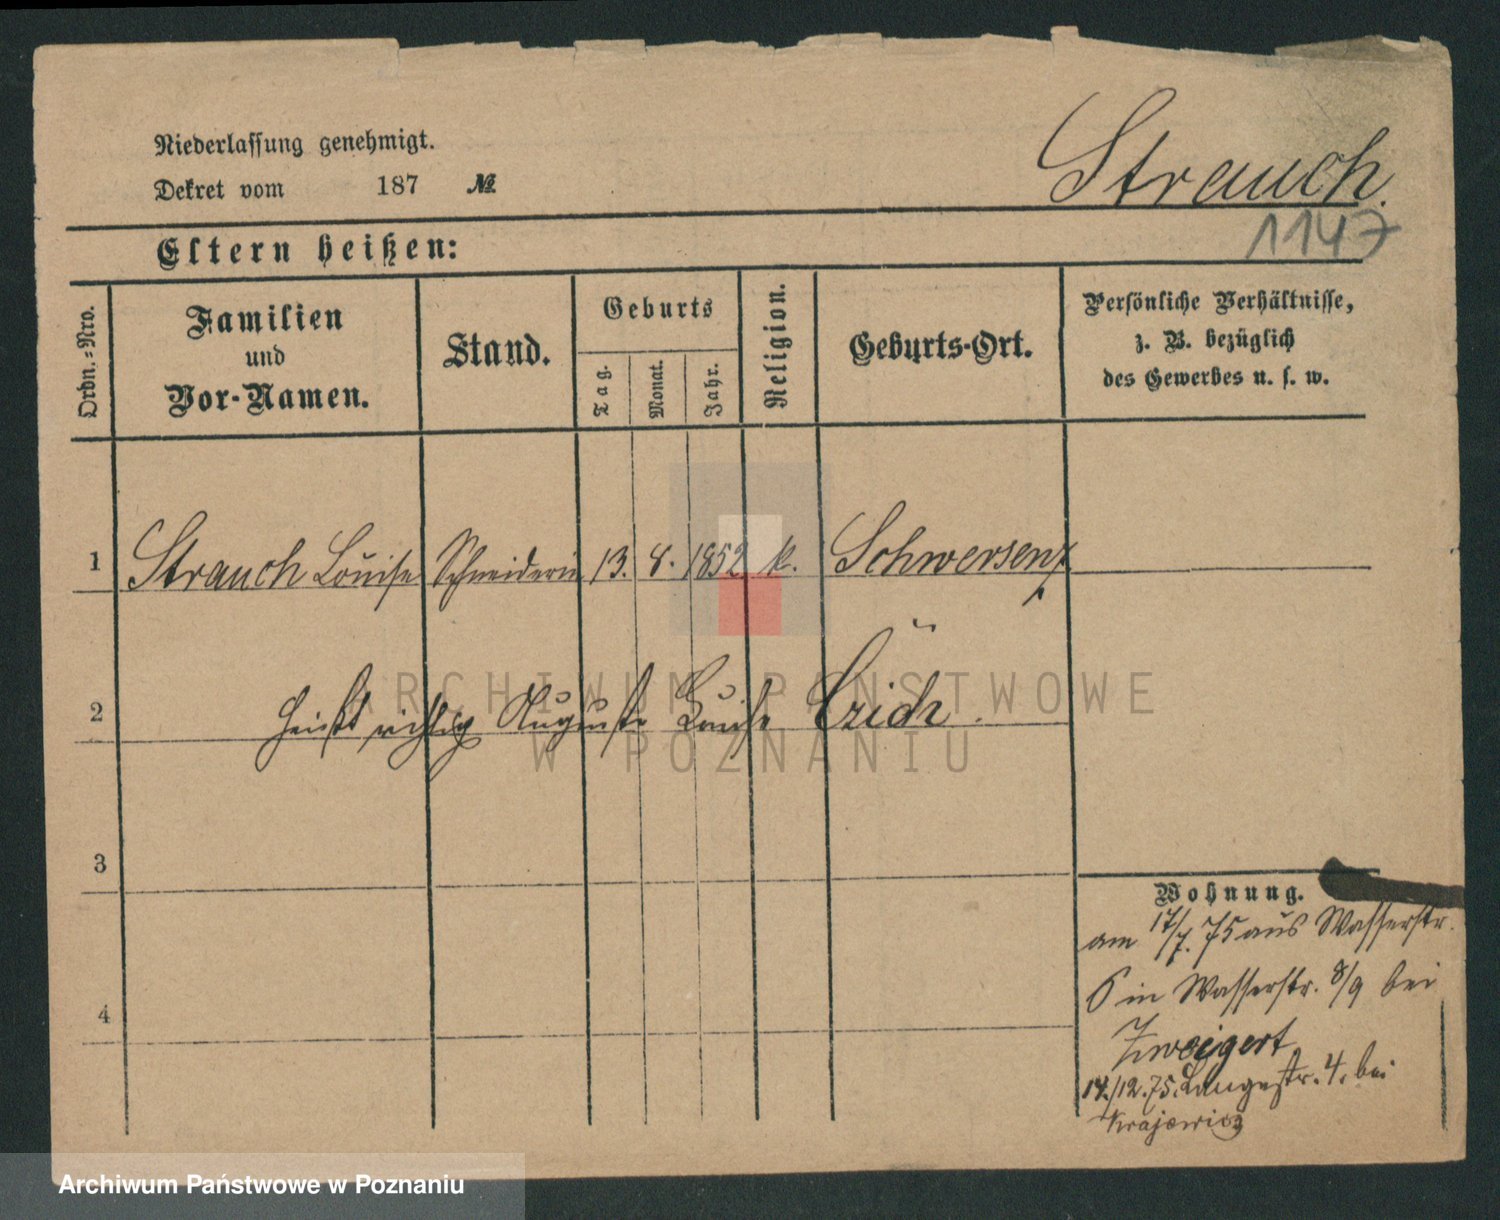 Niederlassung genehmigt.
Dekret vom 187 №
Strauch.
1147
Eltern heißen:
Ordn.=Nro.
Familien
und
Vor-Namen.
Stand.
Geburts
Tag.
Monat.
Jahr.
Religion.
Geburts-Ort.
Persönliche Verhältnisse,
z. B. bezüglich
des Gewerbes u. s. w.
1 Strauch Louise Schneiderin 13. 8. 1852 k. Schwersenz
2 heißt richtig Auguste Louise
3
4
Wohnung.
am 17/7. 75 aus Wasserstr.
6 in Wasserstr. 8/9 bei
Zweigert
14./12.75. Langestr. 4. bei
Krajewicz
ARCHIWUM PAŃSTWOWE
W POZNANIU
Archiwum Państwowe w Poznaniu